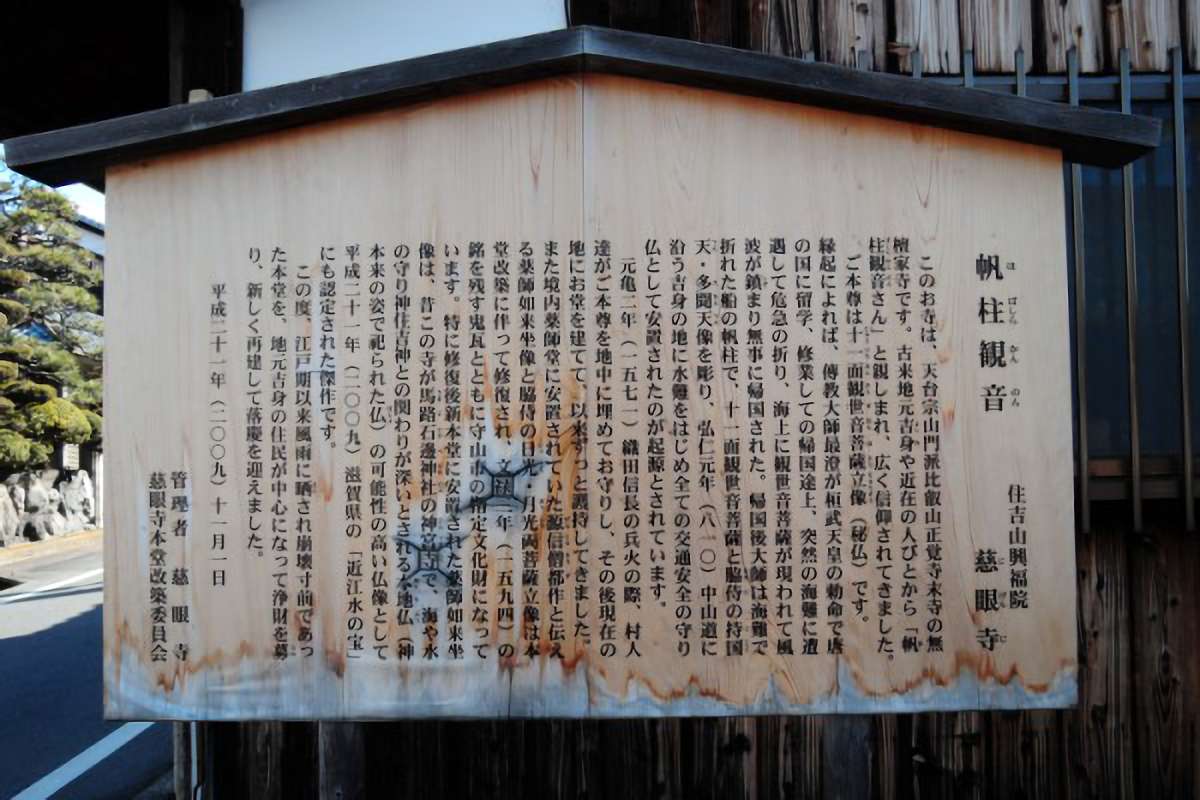 帆柱観音
ほばしらかんのん
住吉山興福院
慈眼寺
じげんじ
このお寺は、天台宗山門派比叡山正覚寺末寺の無
檀家寺です。古来地元吉身や近在の人びとから「帆
柱観音さん」と親しまれ、広く信仰されてきました。
ご本尊は十一面観世音菩薩立像（秘仏）です。
縁起によれば、傳教大師最澄が桓武天皇の勅命で唐
の国に留学、修業しての帰国途上、突然の海難に遭
遇して危急の折り、海上に観世音菩薩が現われて風
波が鎮まり無事に帰国された。帰国後大師は海難で
折れた船の帆柱で、十一面観世音菩薩と脇侍の持国
天・多聞天像を彫り、弘仁元年（八一〇）中山道に
沿う吉身の地に水難をはじめ全ての交通安全の守り
仏として安置されたのが起源とされています。
元亀二年（一五七一）織田信長の兵火の際、村人
達がご本尊を地中に埋めてお守りし、その後現在の
地にお堂を建てて、以来ずっと護持してきました。
また境内薬師堂に安置されていた源信僧都作と伝え
る薬師如来坐像と脇侍の日光・月光両菩薩立像は本
堂改築に伴って修復され、文禄三年（一五九四）の
銘を残す鬼瓦とともに守山市の指定文化財になって
います。特に修復後新本堂に安置された薬師如来坐
像は、昔この寺が馬路石邊神社の神宮寺で、海や水
の守り神住吉神との関わりが深いとされる本地仏（神
本来の姿で祀られた仏）の可能性の高い仏像として
平成二十一年（二〇〇九）滋賀県の「近江水の宝」
にも認定された傑作です。
この度、江戸期以来風雨に晒され崩壊寸前であっ
た本堂を、地元吉身の住民が中心になって浄財を募
り、新しく再建して落慶を迎えました。
平成二十一年（二〇〇九）十一月一日
管理者　慈眼寺
慈眼寺本堂改築委員会